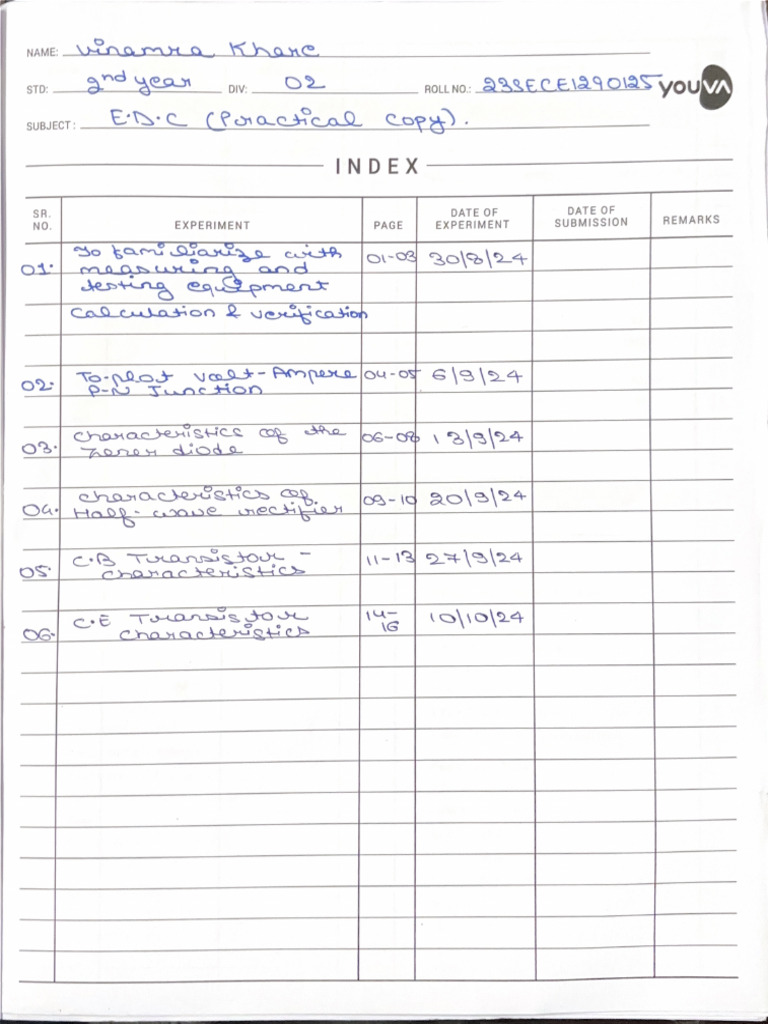 NAME: Vinamra Khare
STD: 2nd year DIV: 02 ROLL NO.: 23SECE1290125 youVA
SUBJECT: E.D.C (Practical Copy).
INDEX
SR. NO. EXPERIMENT PAGE DATE OF EXPERIMENT DATE OF SUBMISSION REMARKS
01. To familiarize with 01-03 30/8/24
measuring and
testing equipment
Calculation & verification
02. To-plot Volt-Ampere 04-05 6/9/24
P-N Junction
03. Characteristics of the 06-08 13/9/24
Zener diode
04. Characteristics of 09-10 20/9/24
Half-wave rectifier
05. C.B Transistor - 11-13 27/9/24
characteristics
06. C.E Transistor 14-16 10/10/24
characteristics